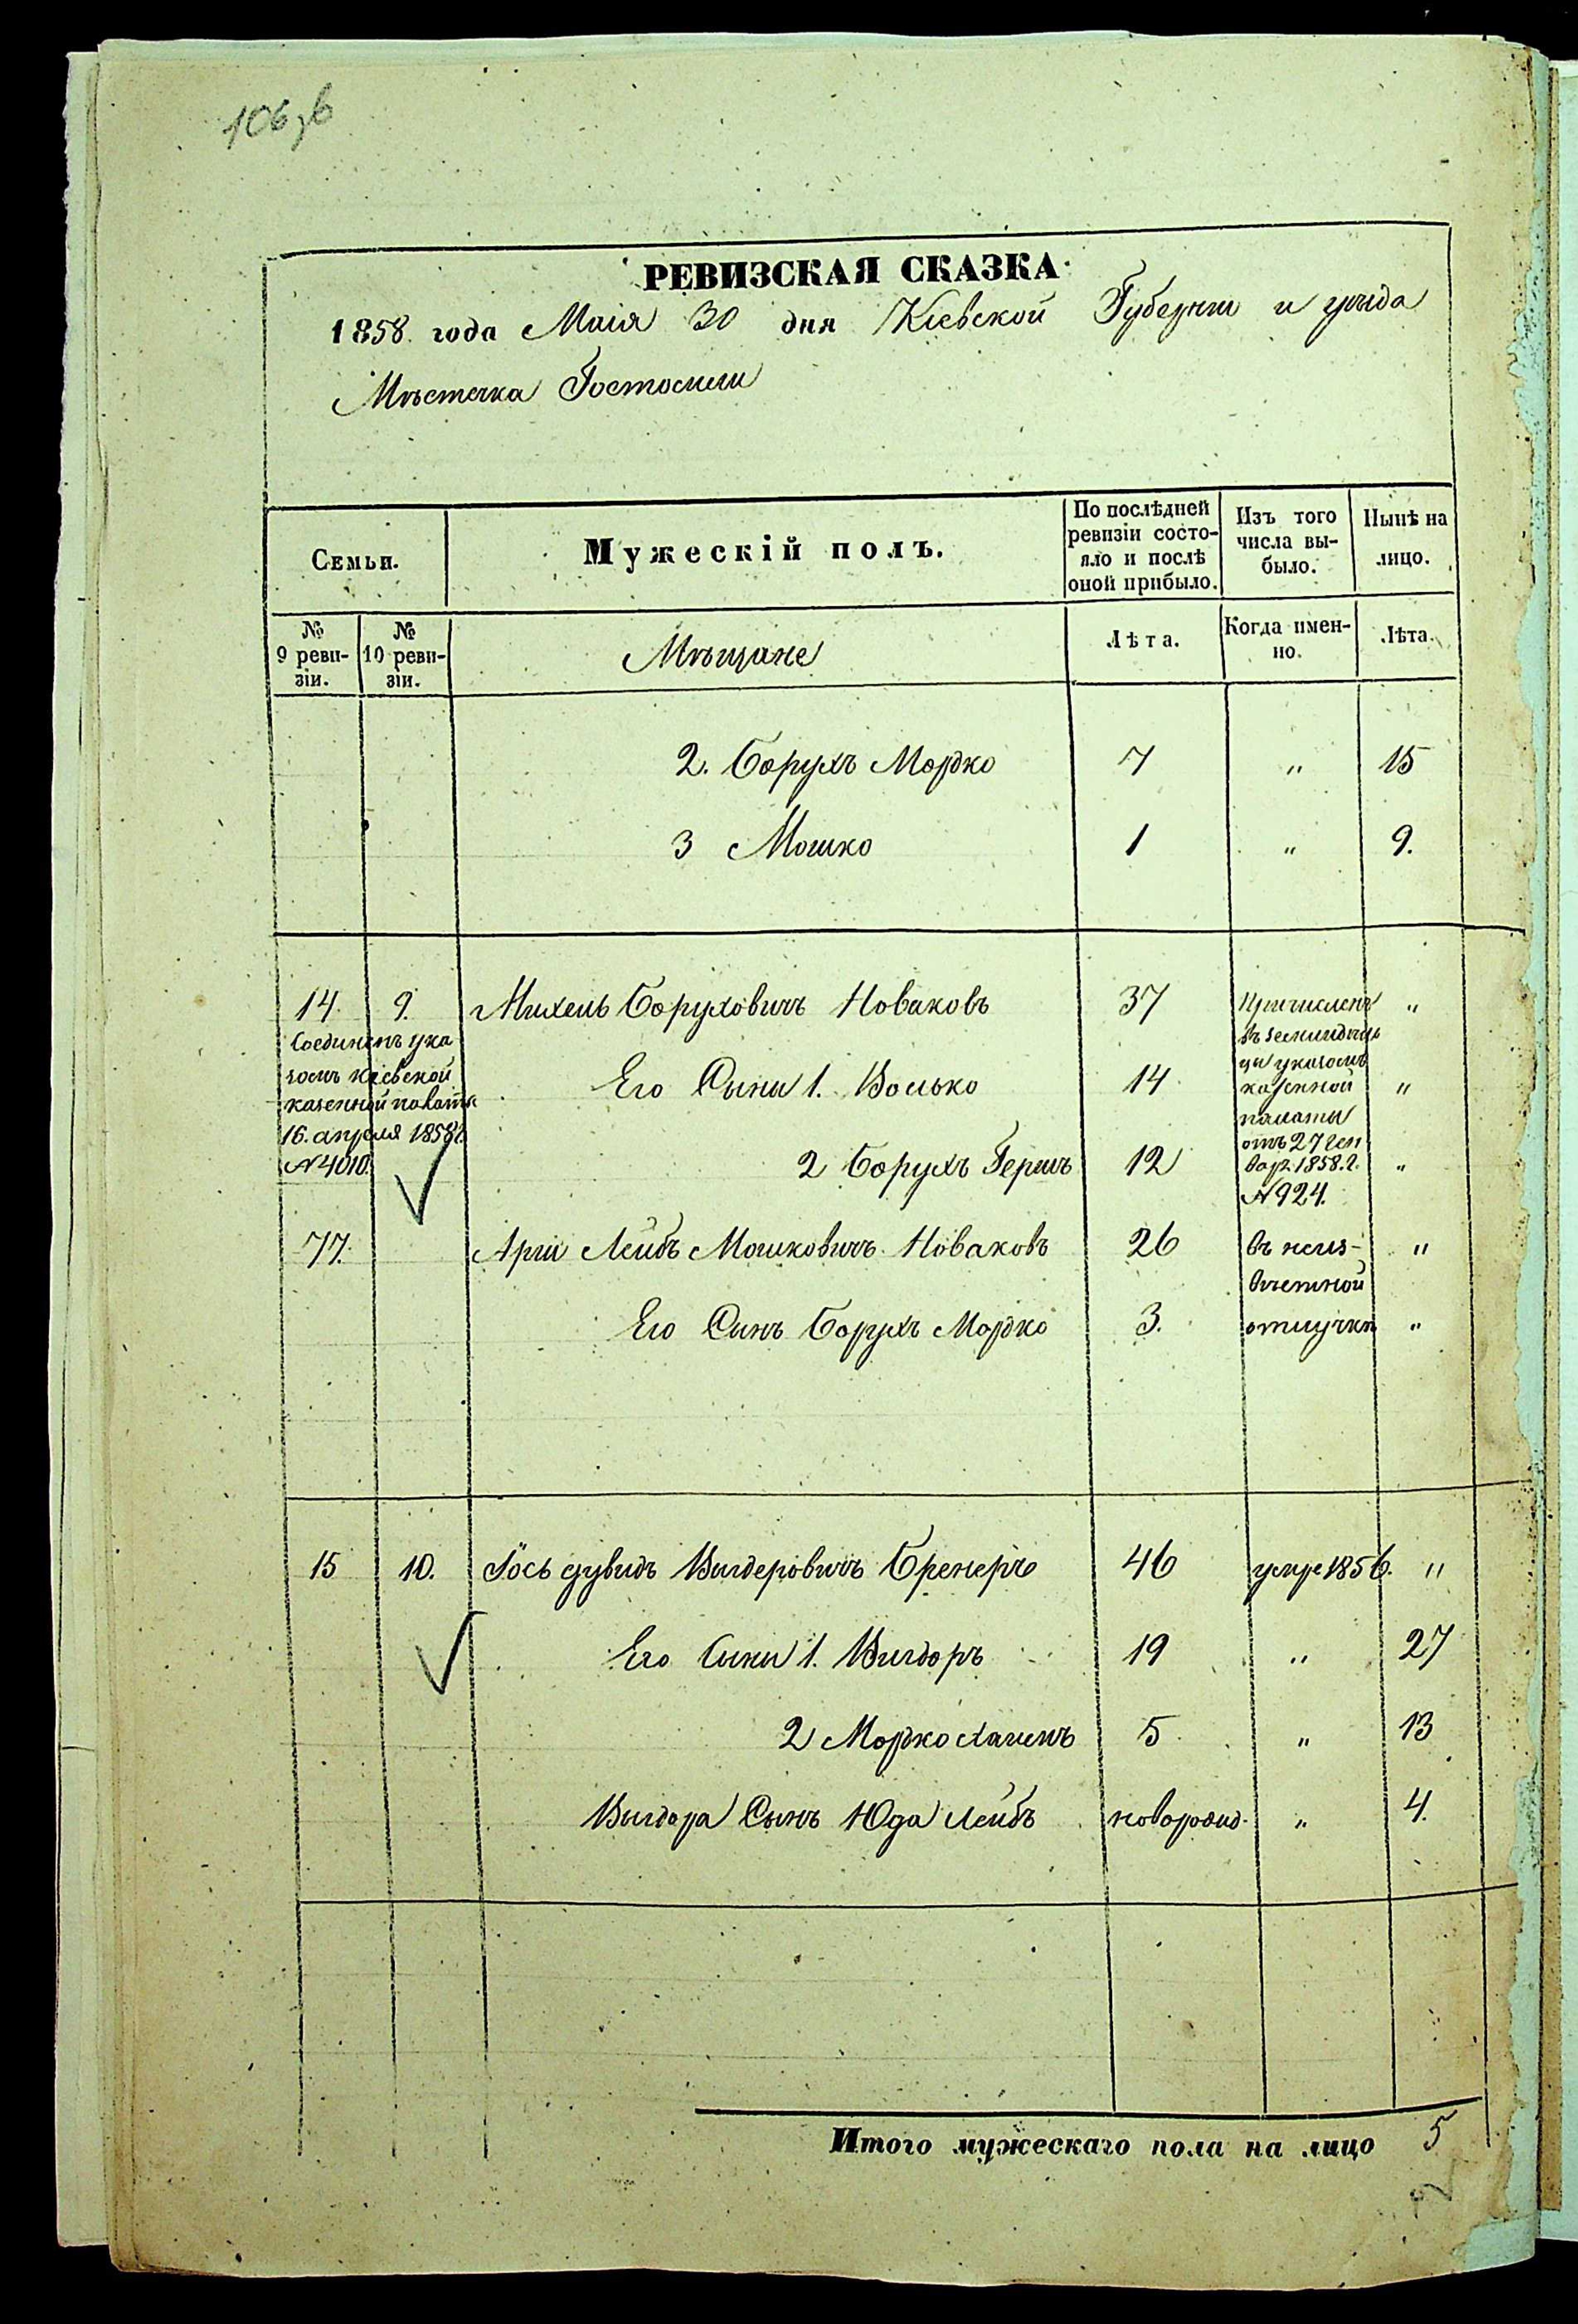 106зв
РЕВИЗСКАЯ СКАЗКА
1858 года Маія 30 дня Кіевской Губерніи и уѣзда
Мѣстечка Гостомеля
Семьи.
Мужескій полъ.
По послѣдней ревизіи состо-
яло и послѣ оной прибыло.
Изъ того числа вы-
было.
Нынѣ на лицо.
№ 9 реви-
зіи.
№ 10 реви-
зіи.
Мѣщане
Лѣта.
Когда имен-
но.
Лѣта.
2. Борухъ Мордко 7 " 15
3 Мошко 1 " 9.
14. 9. Михель Боруховичъ Новаковъ 37 "
Соединенъ ука
зомъ Кіевской
казенной палаты
16. апреля 1858 г.
№ 4010.
Причисленъ
въ
указомъ
казенной
палаты
отъ 27 Ген
вар. 1858. г.
№ 924.
Его Сыны 1. Волько 14 "
2 Борухъ Гершъ 12 "
77. Арш Лейбъ Мошковичъ Новаковъ 26 въ неиз- "
вѣстной
Его Сынъ Борухъ Мордко 3. отлучкѣ "
15 10. Іось дувидъ Вигдеровичъ Бренеръ 46 умре 1856. "
Его Сыны 1. Вигдоръ 19 " 27
2 Мордко Хаимъ 5 " 13
Вигдора Сынъ Юда Лейбъ новорожд. " 4.
Итого мужескаго пола на лицо 5